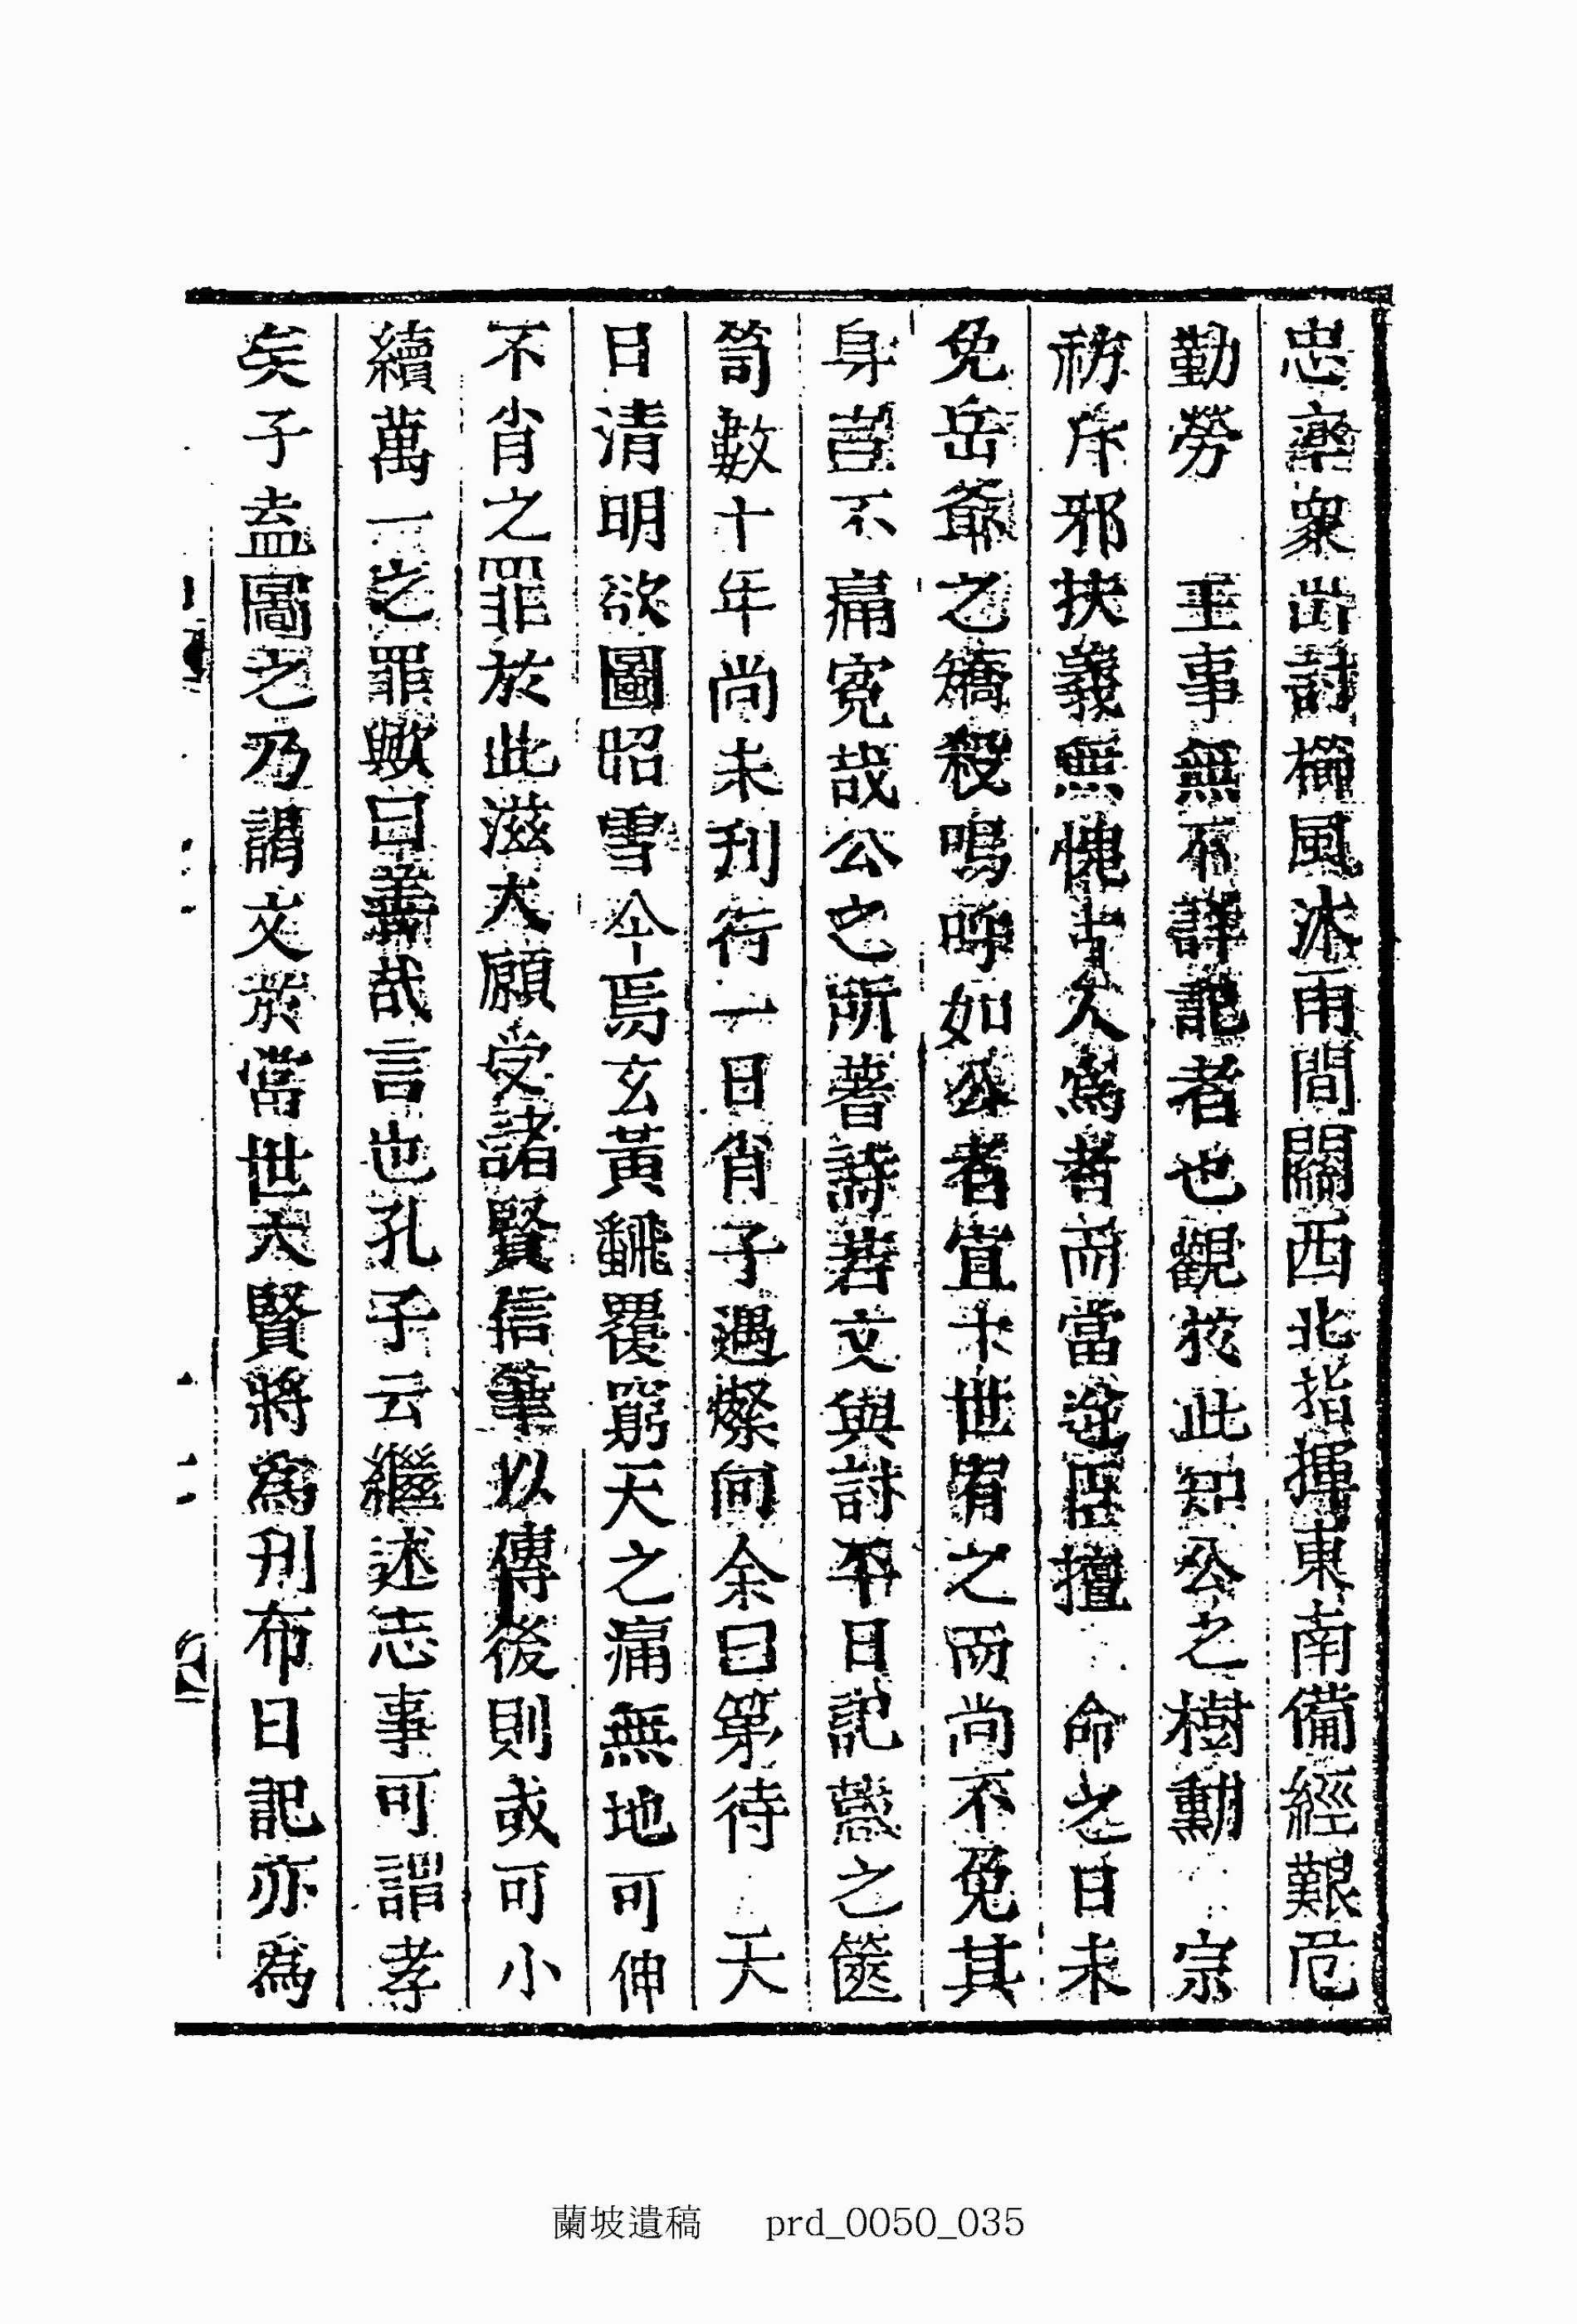 忠率衆出討櫛風沐雨間關西北指揮東南備經艱危
勤勞 王事無不詳記者也觀於此知公之樹勳 宗
祊斥邪扶義無愧古人爲者而當逆臣擅 命之日未
免岳爺之矯殺嗚呼如公者宜十世宥之而尚不免其
身豈不痛寃哉公之所著詩若文與討平日記藏之篋
笥數十年尚未刊行一日肖子遇燦向余曰第待 天
日清明欲圖昭雪今焉玄黃飜覆窮天之痛無地可伸
不肖之罪於此滋大願受諸賢信筆以傳後則或可小
續萬一之罪歟曰善哉言也孔子云繼述志事可謂孝
矣子盍圖之乃謁文於當世大賢將爲刊布日記亦爲
蘭坡遺稿 prd_0050_035